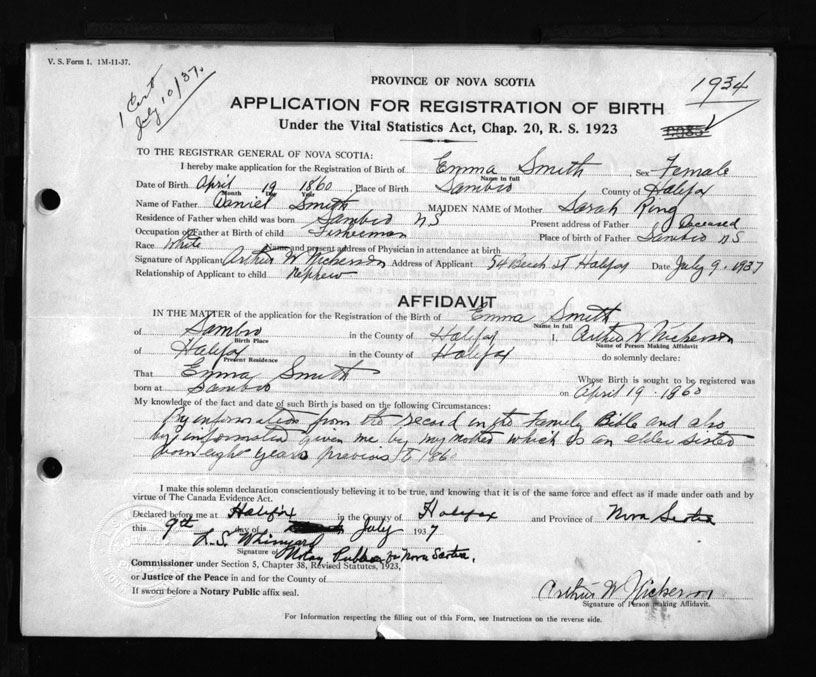 V. S. Form 1. 1M-11-37.
1 Cert
July 10/37.
PROVINCE OF NOVA SCOTIA
1934
APPLICATION FOR REGISTRATION OF BIRTH
Under the Vital Statistics Act, Chap. 20, R. S. 1923
TO THE REGISTRAR GENERAL OF NOVA SCOTIA:
I hereby make application for the Registration of Birth of Emma Smith Sex Female
Name in full
Date of Birth April 19 1860 Place of Birth Sambro County of Halifax
Month Day Year
Name of Father Daniel Smith MAIDEN NAME of Mother Sarah Ring
Residence of Father when child was born Sambro NS Present address of Father Deceased
Occupation of Father at Birth of Child Fisherman Place of birth of Father Sambro NS
Race White Name and present address of Physician in attendance at birth
Signature of Applicant Arthur W Nickerson Address of Applicant 54 Beech St Halifax Date July 9. 1937
Relationship of Applicant to child Nephew
AFFIDAVIT
IN THE MATTER of the application for the Registration of the Birth of Emma Smith
Name in full
of Sambro in the County of Halifax I, Arthur W Nickerson
Birth Place Name of Person Making Affidavit
of Halifax in the County of Halifax do solemnly declare:
Present Residence
That Emma Smith Whose Birth is sought to be registered was
born at Sambro on April 19 - 1860
My knowledge of the fact and date of such Birth is based on the following Circumstances:
By information from the record in the Family Bible and also
by information given me by my mother which is an elder sister
born eight years previous to 1860
I make this solemn declaration conscientiously believing it to be true, and knowing that it is of the same force and effect as if made under oath and by
virtue of The Canada Evidence Act.
Declared before me at Halifax in the County of Halifax and Province of Nova Scotia
this 9th day of July 1937
L. S.
Signature of Notary Public for Nova Scotia.
Commissioner under Section 5, Chapter 38, Revised Statutes, 1923,
or Justice of the Peace in and for the County of
If sworn before a Notary Public affix seal.
Arthur W Nickerson
Signature of Person Making Affidavit.
For Information respecting the filling out of this Form, see Instructions on the reverse side.